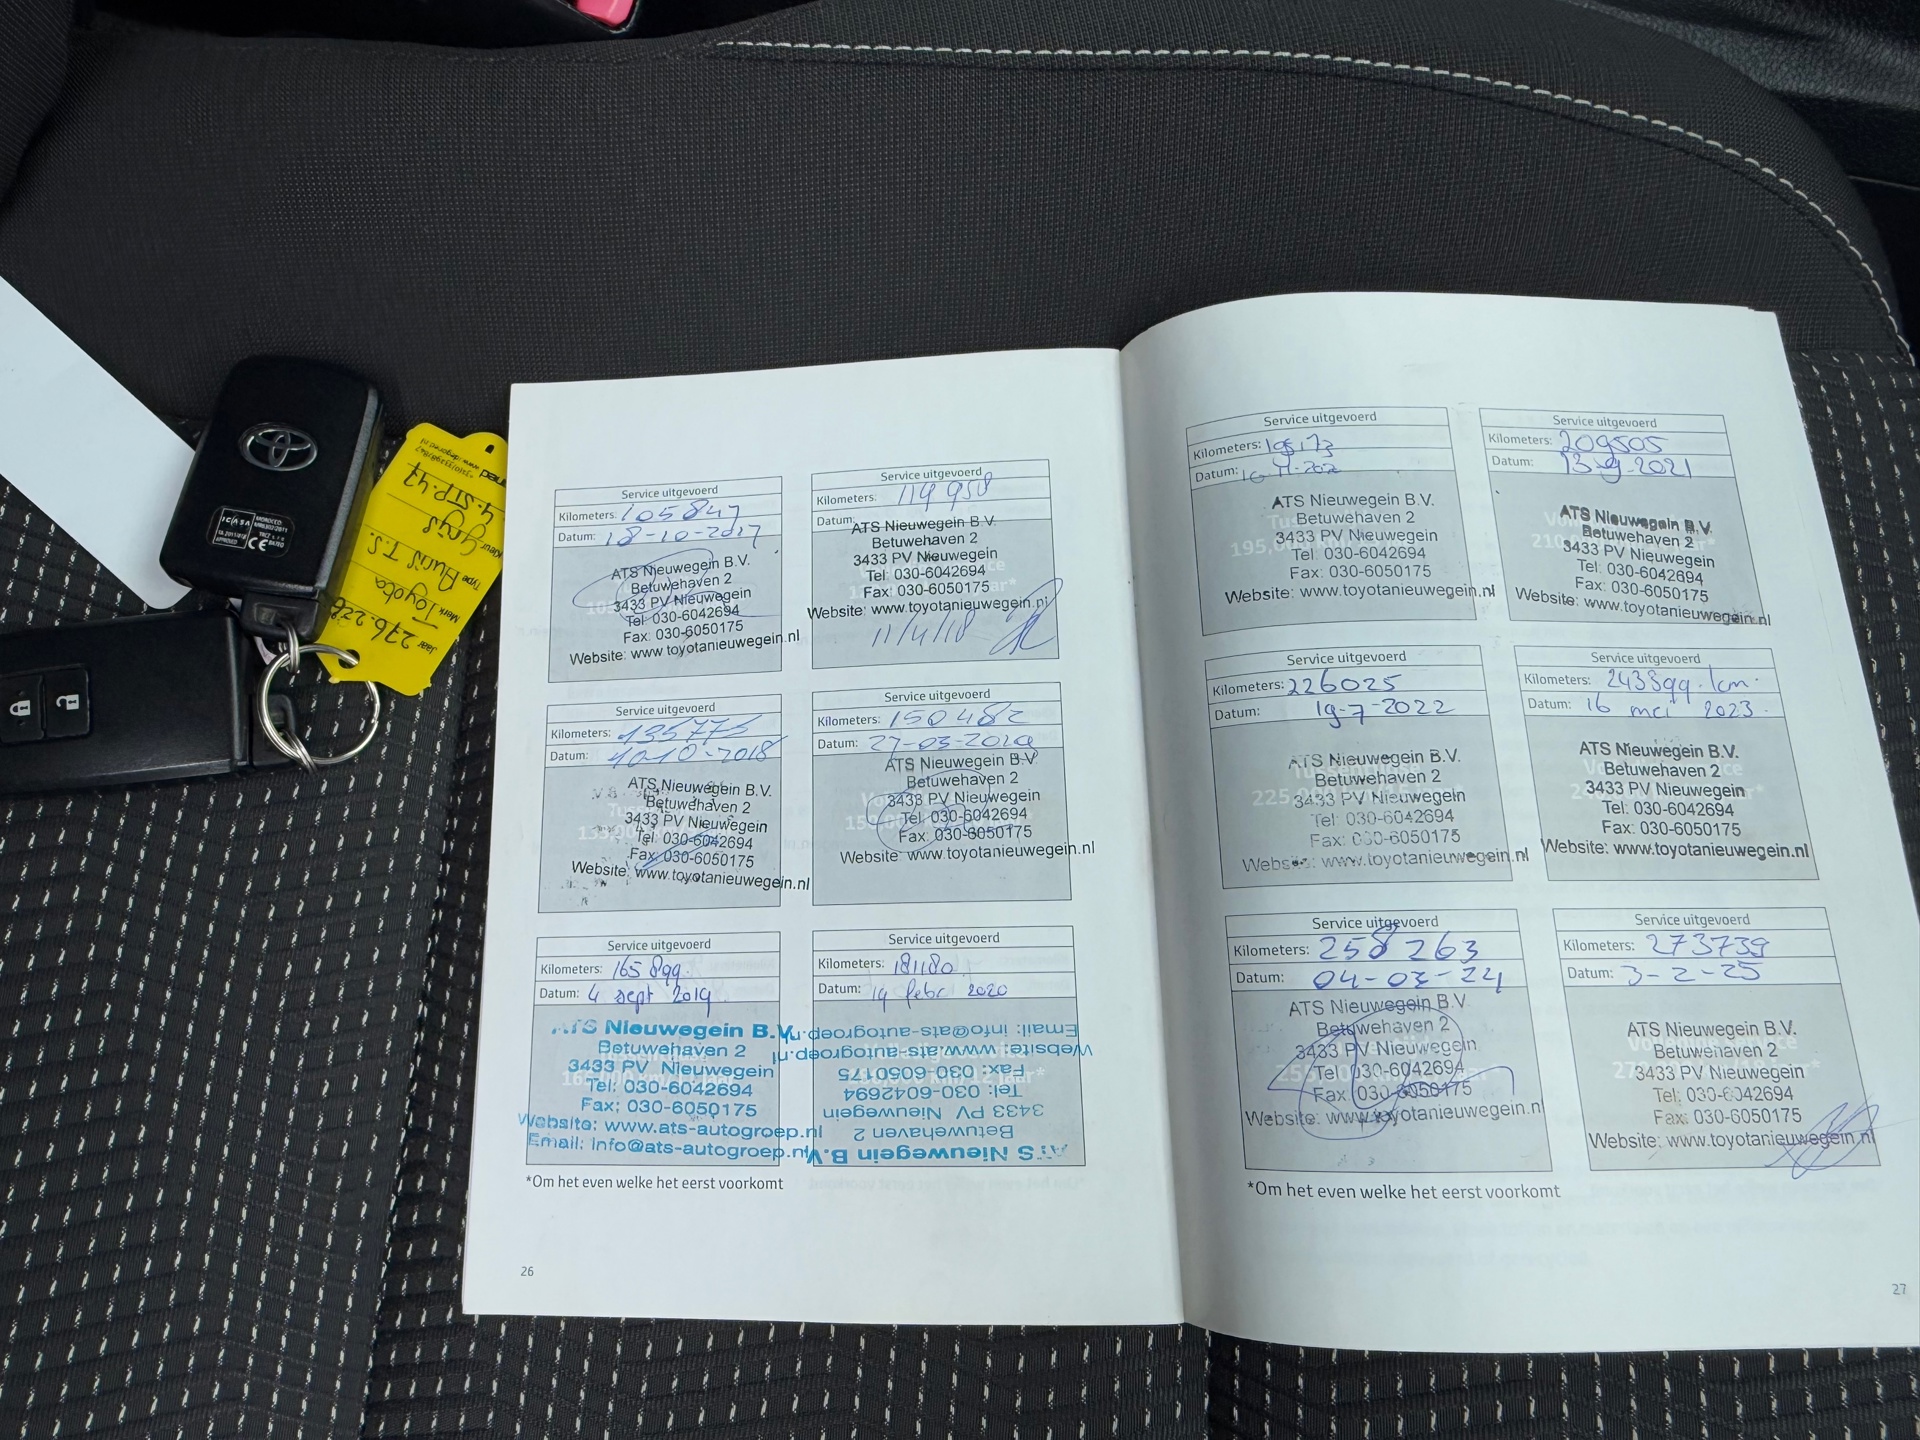 Service uitgevoerd
Kilometers: 105847
Datum: 18-10-2017
ATS Nieuwegein B.V.
Betuwehaven 2
3433 PV Nieuwegein
Tel: 030-6042694
Fax: 030-6050175
Website: www.toyotanieuwegein.nl
Service uitgevoerd
Kilometers: 119958
Datum:
ATS Nieuwegein B.V.
Betuwehaven 2
3433 PV Nieuwegein
Tel: 030-6042694
Fax: 030-6050175
Website: www.toyotanieuwegein.nl
11/4/18
Service uitgevoerd
Kilometers: 135775
Datum: 10-10-2018
ATS Nieuwegein B.V.
Betuwehaven 2
3433 PV Nieuwegein
Tel: 030-6042694
Fax: 030-6050175
Website: www.toyotanieuwegein.nl
Service uitgevoerd
Kilometers: 150482
Datum: 27-03-2019
ATS Nieuwegein B.V.
Betuwehaven 2
3433 PV Nieuwegein
Tel: 030-6042694
Fax: 030-6050175
Website: www.toyotanieuwegein.nl
Service uitgevoerd
Kilometers: 165899
Datum: 4 sept 2019
ATS Nieuwegein B.V.
Betuwehaven 2
3433 PV Nieuwegein
Tel: 030-6042694
Fax: 030-6050175
Website: www.ats-autogroep.nl
Email: info@ats-autogroep.nl
Service uitgevoerd
Kilometers: 181180
Datum: 19 febr 2020
ATS Nieuwegein B.V.
Betuwehaven 2
3433 PV Nieuwegein
Tel: 030-6042694
Fax: 030-6050175
Website: www.ats-autogroep.nl
Email: info@ats-autogroep.nl
*Om het even welke het eerst voorkomt
26
Service uitgevoerd
Kilometers:
Datum:
ATS Nieuwegein B.V.
Betuwehaven 2
3433 PV Nieuwegein
Tel: 030-6042694
Fax: 030-6050175
Website: www.toyotanieuwegein.nl
Service uitgevoerd
Kilometers: 209505
Datum: 13-9-2021
ATS Nieuwegein B.V.
Betuwehaven 2
3433 PV Nieuwegein
Tel: 030-6042694
Fax: 030-6050175
Website: www.toyotanieuwegein.nl
Service uitgevoerd
Kilometers: 226025
Datum: 19-7-2022
ATS Nieuwegein B.V.
Betuwehaven 2
3433 PV Nieuwegein
Tel: 030-6042694
Fax: 030-6050175
Website: www.toyotanieuwegein.nl
Service uitgevoerd
Kilometers: 243899 km.
Datum: 16 mei 2023.
ATS Nieuwegein B.V.
Betuwehaven 2
3433 PV Nieuwegein
Tel: 030-6042694
Fax: 030-6050175
Website: www.toyotanieuwegein.nl
Service uitgevoerd
Kilometers: 258263
Datum: 04-03-24
ATS Nieuwegein B.V.
Betuwehaven 2
3433 PV Nieuwegein
Tel: 030-6042694
Fax: 030-6050175
Website: www.toyotanieuwegein.nl
Service uitgevoerd
Kilometers: 273739
Datum: 3-2-25
ATS Nieuwegein B.V.
Betuwehaven 2
3433 PV Nieuwegein
Tel: 030-6042694
Fax: 030-6050175
Website: www.toyotanieuwegein.nl
*Om het even welke het eerst voorkomt
27
4-STP-47
Kleur Grijs
Type Auris T.S.
Merk Toyota
Jaar 276.226
ICASA
CE